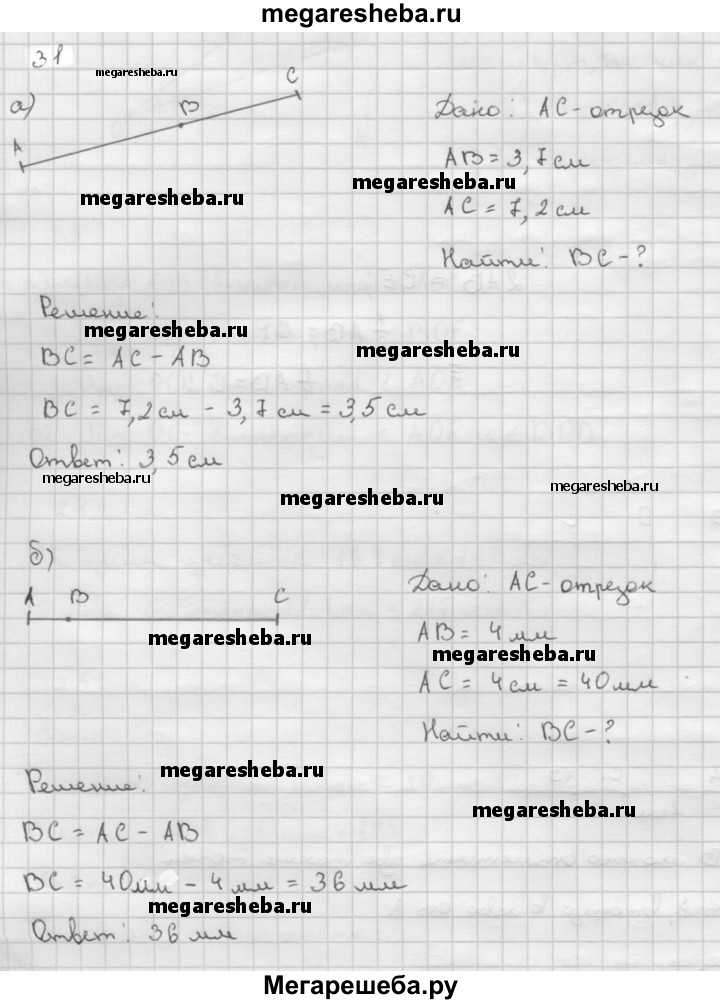 megaresheba.ru
31
megaresheba.ru
а)
A B C
Дано: AC - отрезок
AB = 3,7 см
megaresheba.ru
megaresheba.ru
AC = 7,2 см
Найти: BC - ?
Решение:
megaresheba.ru
BC = AC - AB
megaresheba.ru
BC = 7,2 см - 3,7 см = 3,5 см
Ответ: 3,5 см
megaresheba.ru
megaresheba.ru
megaresheba.ru
б)
A B C
Дано: AC - отрезок
AB = 4 мм
megaresheba.ru
megaresheba.ru
AC = 4 см = 40 мм
Найти: BC - ?
Решение:
megaresheba.ru
megaresheba.ru
BC = AC - AB
BC = 40 мм - 4 мм = 36 мм
megaresheba.ru
Ответ: 36 мм
Мегарешеба.ру